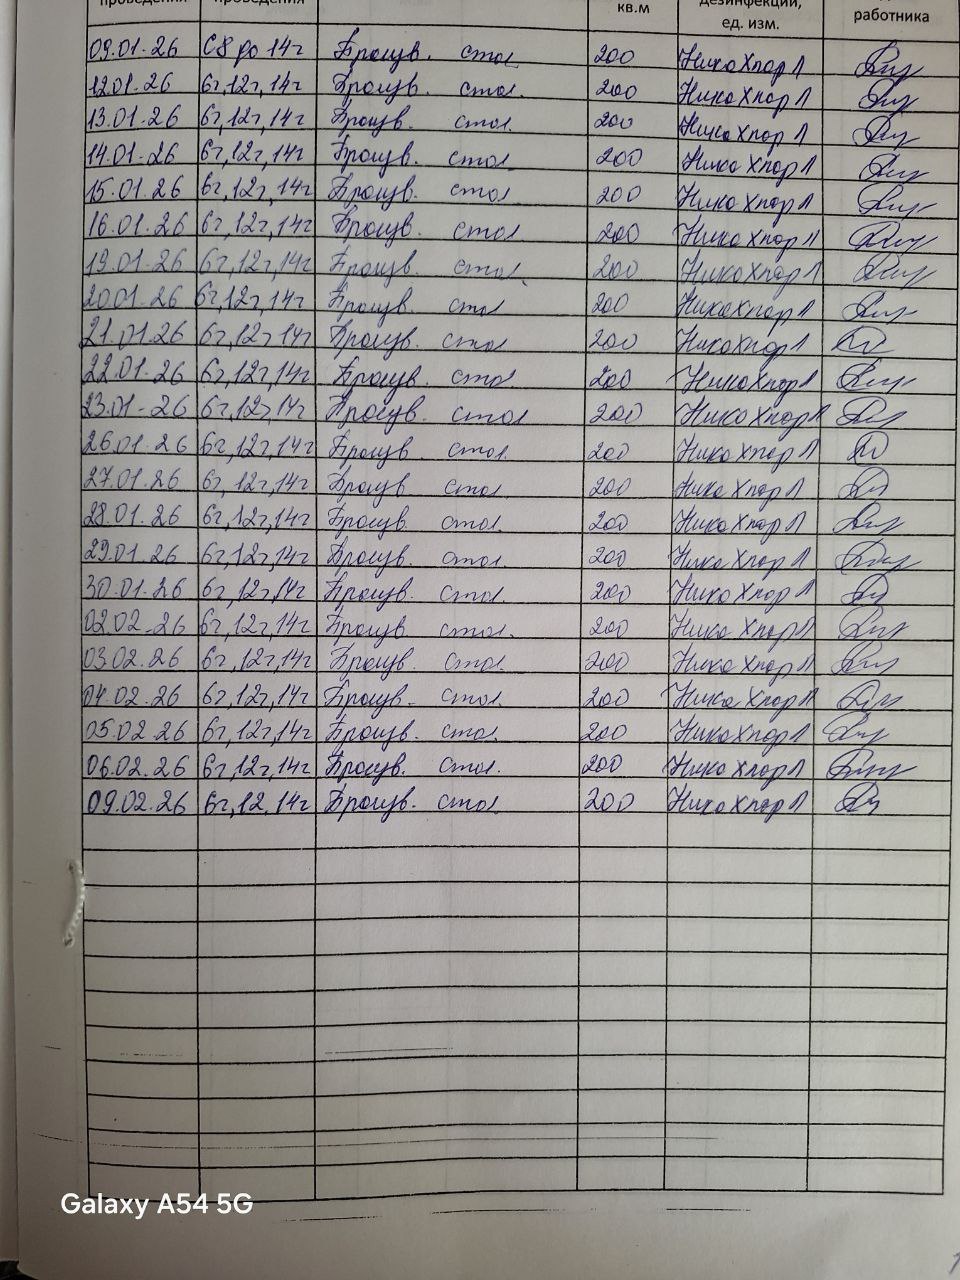 проведения проведения кв.м дезинфекции, ед. изм. работника
09.01.26 С8 до 14ч Произв. стол 200 Ника Хлор Л
12.01.26 6ч,12ч,14ч Произв. стол. 200 Ника Хлор Л
13.01.26 6ч,12ч,14ч Произв. стол. 200 Ника Хлор Л
14.01.26 6ч,12ч,14ч Произв. стол 200 Ника Хлор Л
15.01.26 6ч,12ч,14ч Произв. стол 200 Ника Хлор Л
16.01.26 6ч,12ч,14ч Произв. стол 200 Ника Хлор Л
19.01.26 6ч,12ч,14ч Произв. стол. 200 Ника Хлор Л
20.01.26 6ч,12ч,14ч Произв. стол 200 Ника Хлор Л
21.01.26 6ч,12ч,14ч Произв. стол 200 Ника Хлор Л
22.01.26 6ч,12ч,14ч Произв. стол 200 Ника Хлор Л
23.01-26 6ч,12ч,14ч Произв. стол 200 Ника Хлор Л
26.01.26 6ч,12ч,14ч Произв. стол. 200 Ника Хлор Л
27.01.26 6ч,12ч,14ч Произв. стол. 200 Ника Хлор Л
28.01.26 6ч,12ч,14ч Произв. стол. 200 Ника Хлор Л
29.01.26 6ч,12ч,14ч Произв. стол. 200 Ника Хлор Л
30.01.26 6ч,12ч,14ч Произв. стол. 200 Ника Хлор Л
02.02.26 6ч,12ч,14ч Произв. стол. 200 Ника Хлор Л
03.02.26 6ч,12ч,14ч Произв. стол. 200 Ника Хлор Л
04.02.26 6ч,12ч,14ч Произв. стол. 200 Ника Хлор Л
05.02.26 6ч,12ч,14ч Произв. стол. 200 Ника Хлор Л
06.02.26 6ч,12ч,14ч Произв. стол. 200 Ника Хлор Л
09.02.26 6ч,12,14ч Произв. стол 200 Ника Хлор Л
Galaxy A54 5G